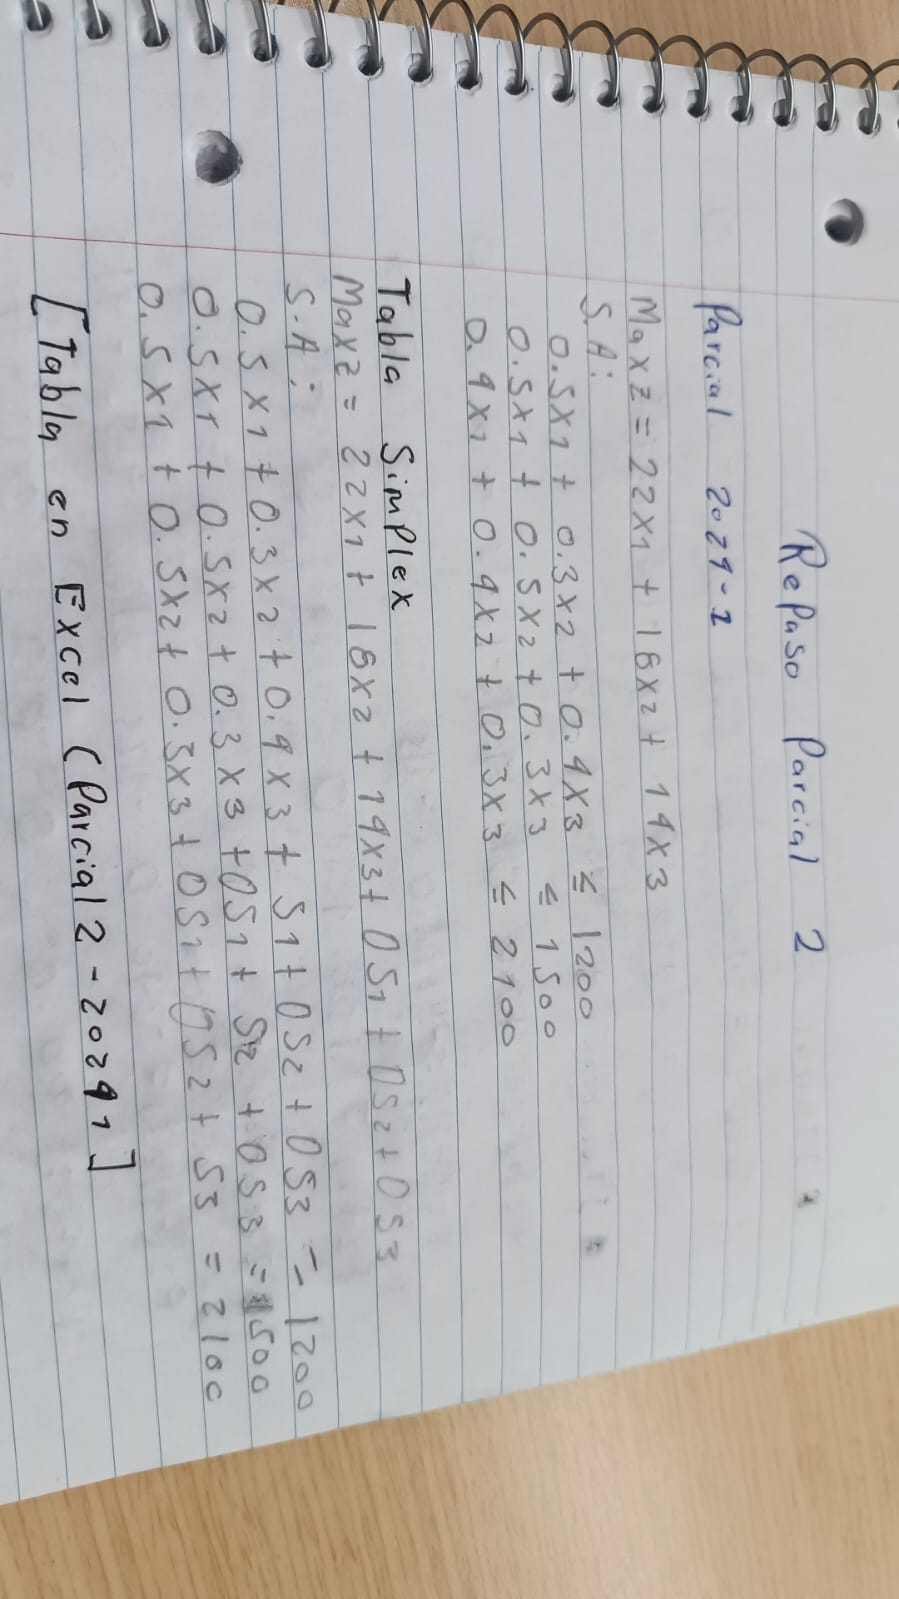 Repaso Parcial 2
Parcial 2024-1
Max z = 22x1 + 18x2 + 14x3
S.A:
0.5x1 + 0.3x2 + 0.4x3 ≤ 1200
0.5x1 + 0.5x2 + 0.3x3 ≤ 1500
0.4x1 + 0.4x2 + 0.3x3 ≤ 2100
Tabla Simplex
Max z = 22x1 + 18x2 + 14x3 + 0S1 + 0S2 + 0S3
S.A:
0.5x1 + 0.3x2 + 0.4x3 + S1 + 0S2 + 0S3 = 1200
0.5x1 + 0.5x2 + 0.3x3 + 0S1 + S2 + 0S3 = 1500
0.5x1 + 0.5x2 + 0.3x3 + 0S1 + 0S2 + S3 = 2100
[Tabla en Excel (Parcial 2 - 20241]